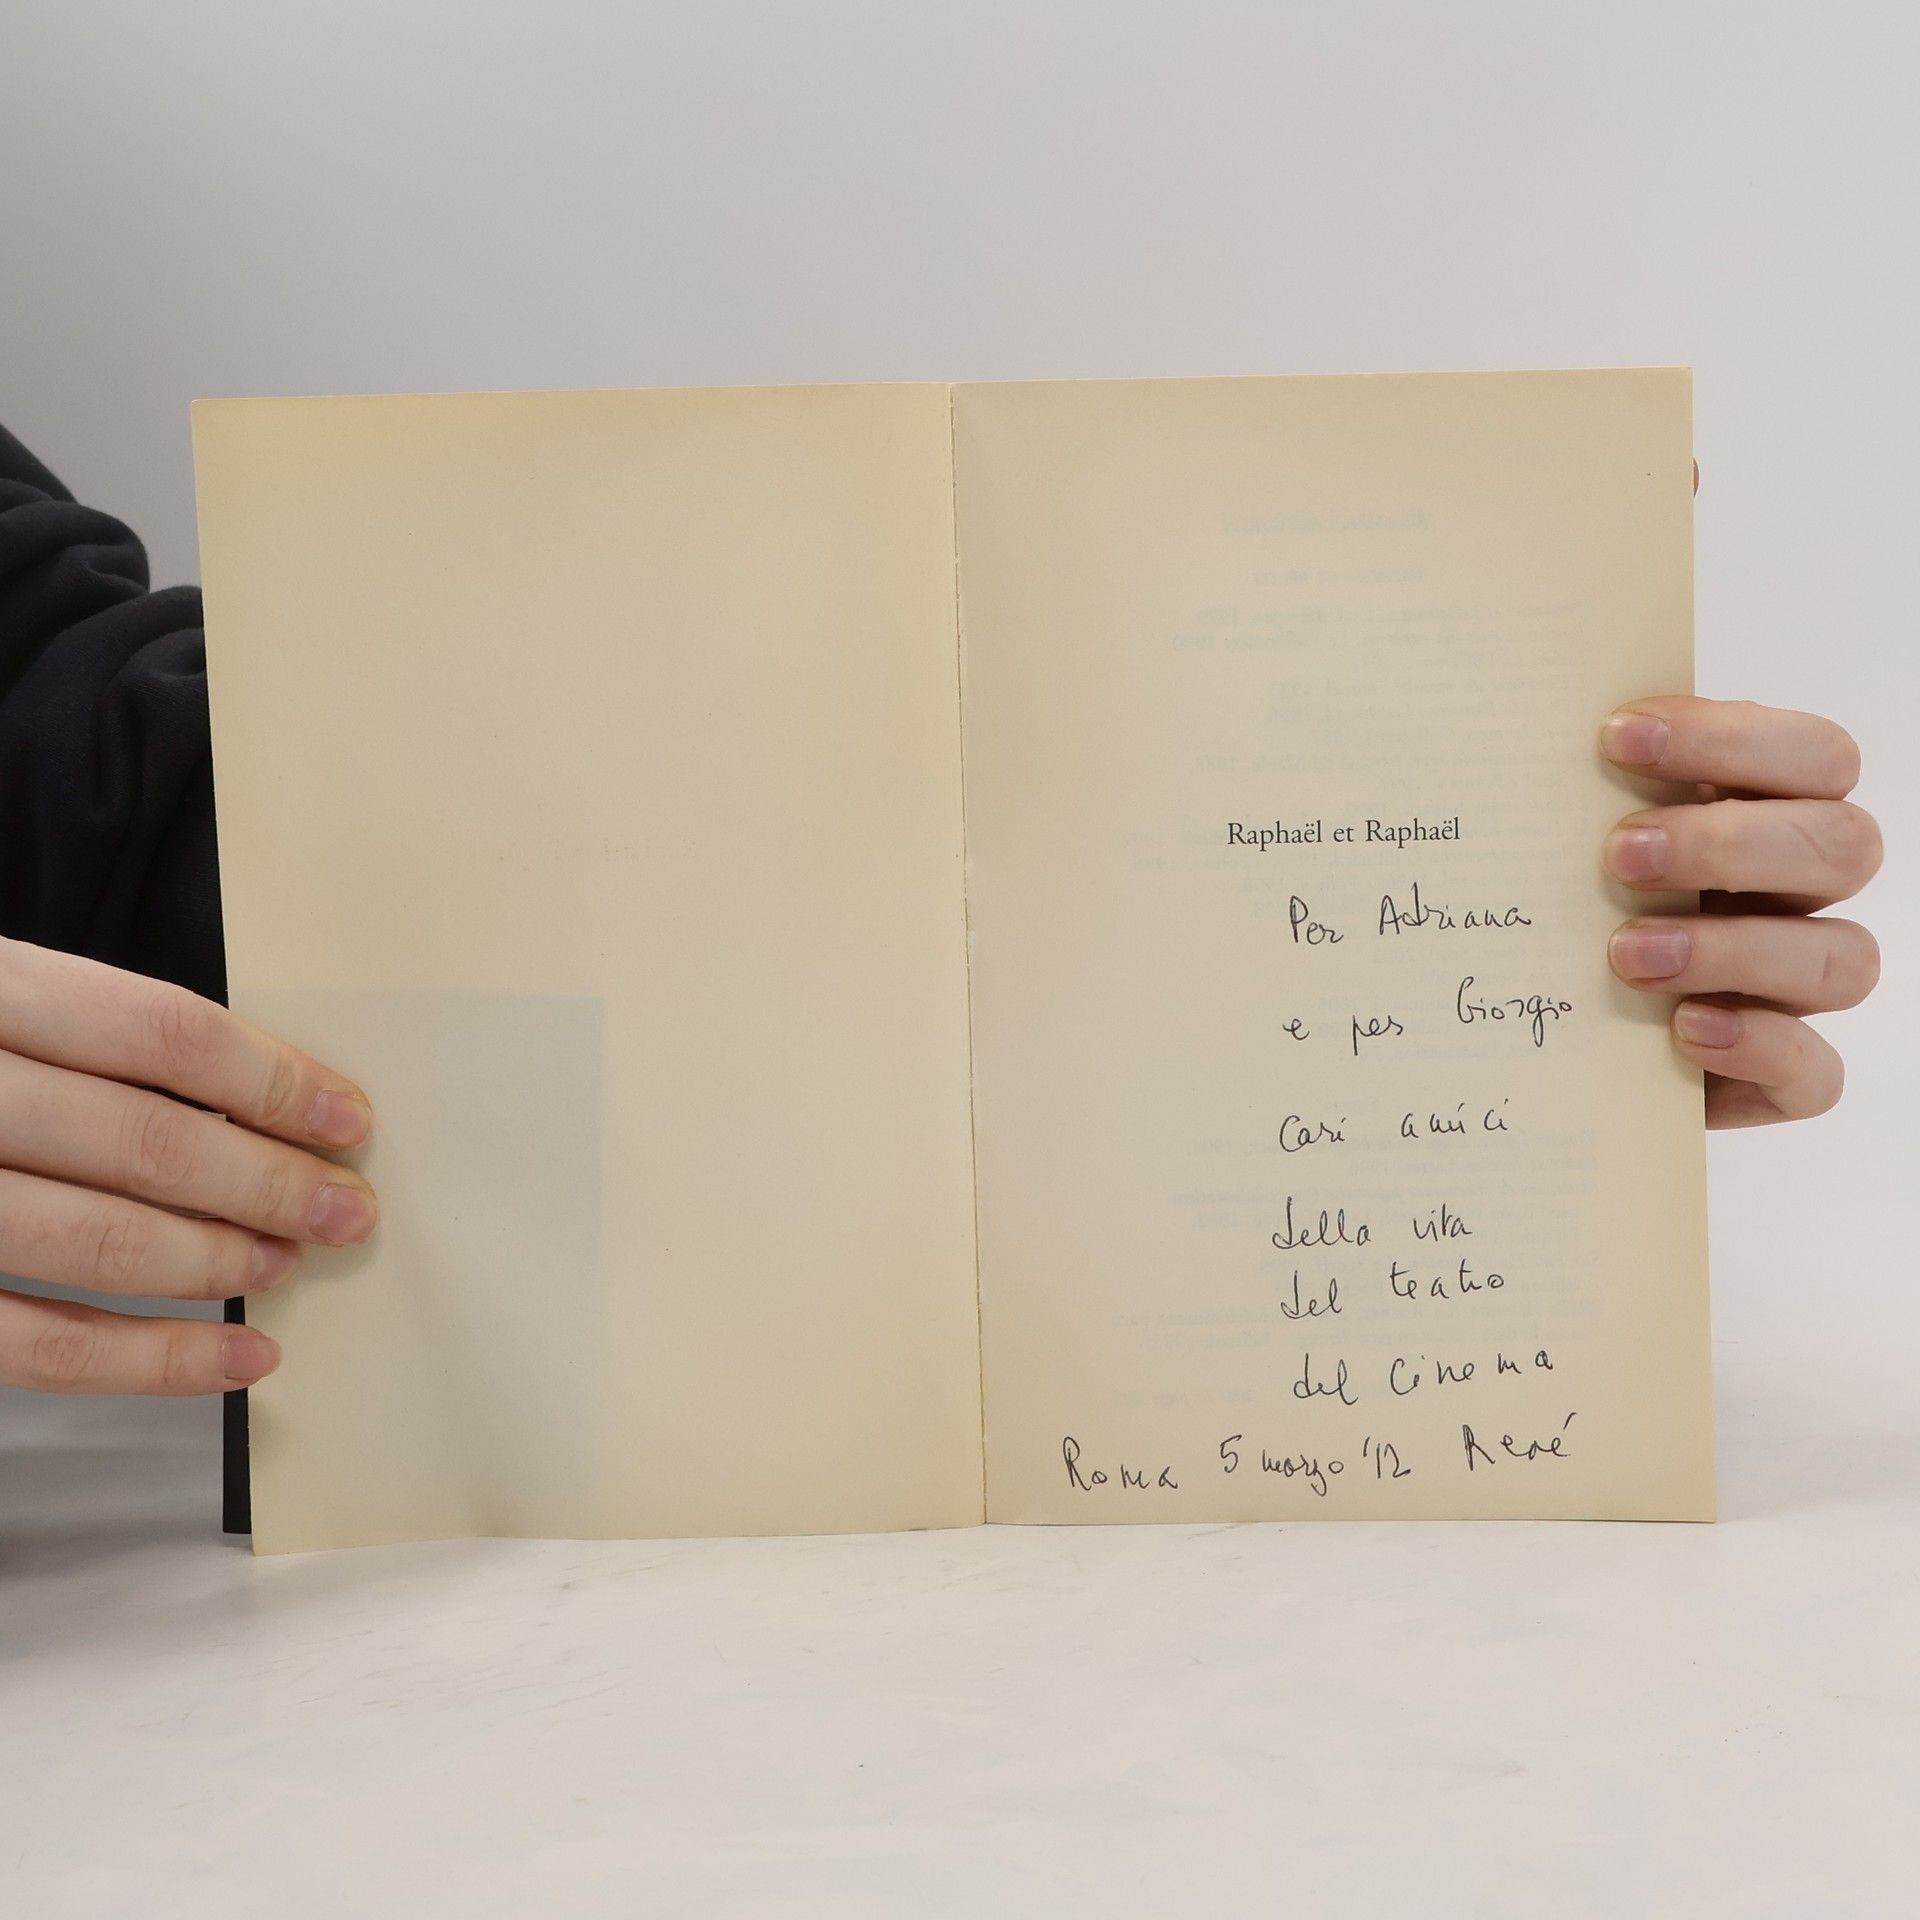 Raphaël et Raphaël
Per Adriana
e per Giorgio
cari amici
della vita
del teatro
del cinema
Roma 5 marzo '12 René